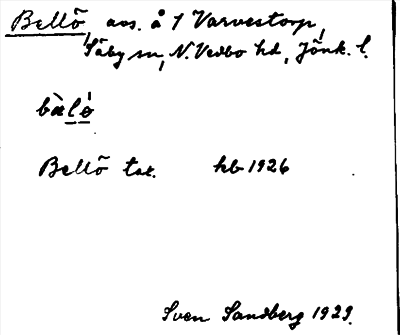 Bellö, avs. å 1 Varvestorp,
Säby sn, N. Vedbo hd, Jönk. l.
bàlö́
Bellö tat. hb 1926
Sven Sandberg 1929.